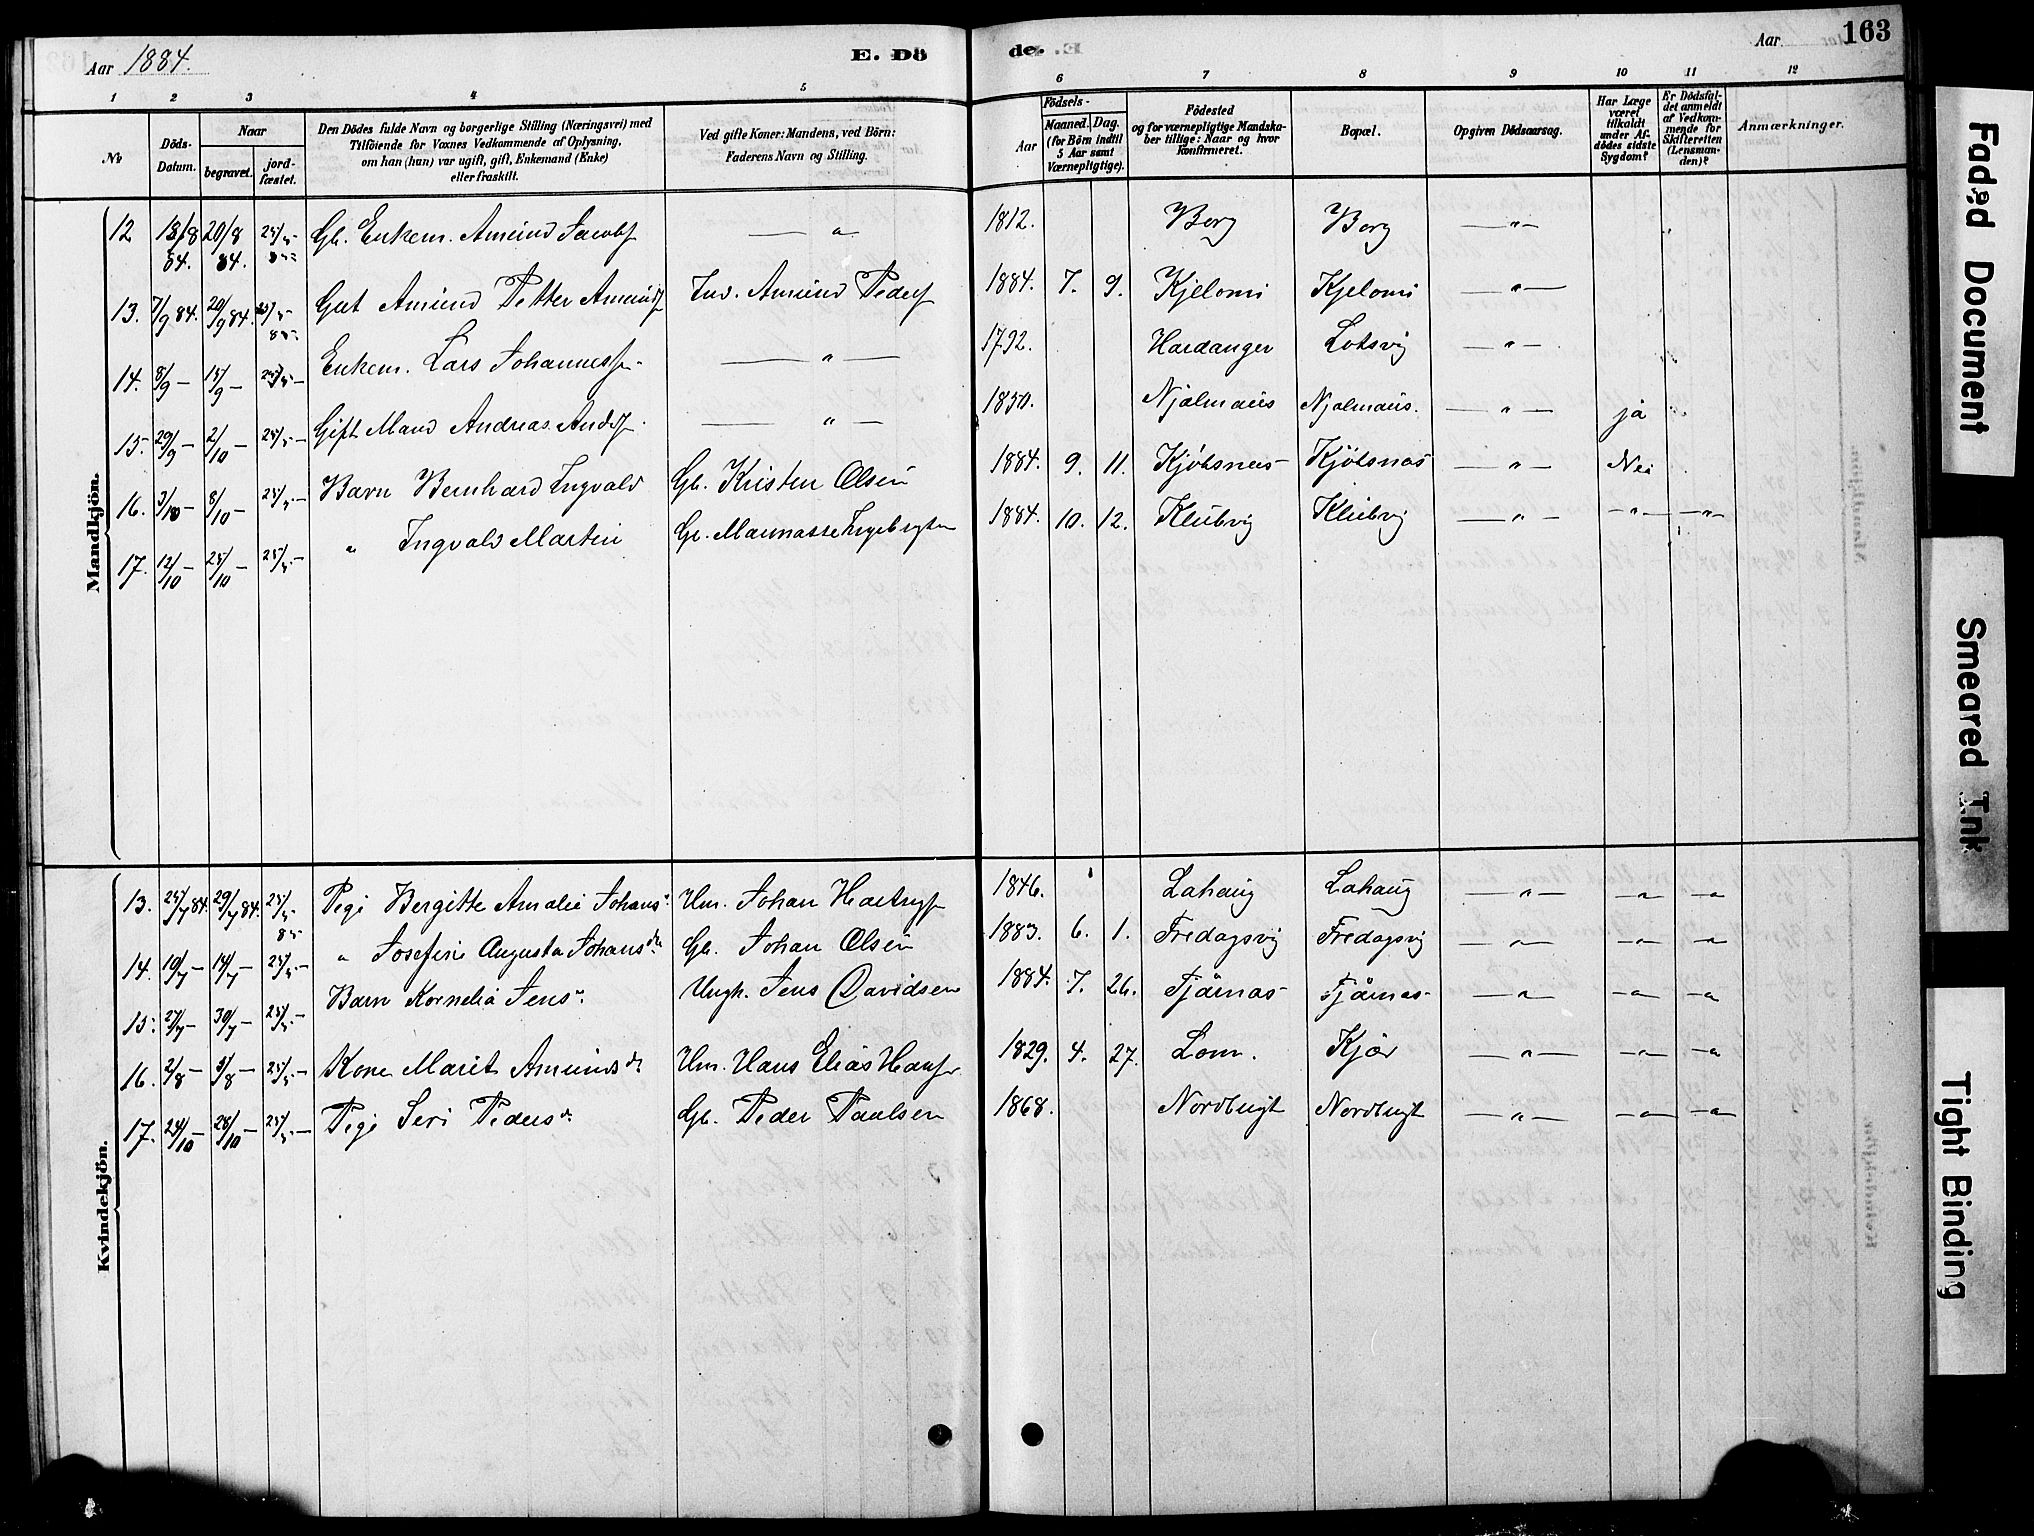 Aar 1884. E. Dö
de. Aar 163
1 2 3 4 5 6 7 8 9 10 11 12
No
Döds-Datum.
Naar
begravet.
jord-fæstet.
Den Dödes fulde Navn og borgerlige Stilling (Næringsvei) med
Tilföiende for Voxnes Vedkommende af Oplysning,
om han (hun) var ugift, gift, Enkemand (Enke)
eller fraskilt.
Ved gifte Koner: Mandens, ved Börn:
Faderens Navn og Stilling.
Födsels-
Aar
Maaned. Dag.
(for Börn indtil
5 Aar samt
Værnepligtige).
Födested
og for værnepligtige Mandska-
ber tillige: Naar og hvor
konfirmeret.
Bopæl.
Opgiven Dödsaarsag.
Har Læge
været
tilkaldt
under Af-
dödes sidste
Sygdom?
Er Dödsfal-
det anmeldt
af Vedkom-
mende for
Skifteretten
(Lensman-
den)?
Anmærkninger.
Mandkjön.
12 18/8 84. 20/8 84. Gb. Enkem. Amund Jacobs — " 1812. Borg Borg — " —
13. 7/9 84. 20/9 84. Gut Amund Petter Amunds Inv. Amund Peders 1884. 7. 9. Kjelomi Kjelomi — " —
14. 8/9 — 15/9 — Enkem. Lars Johanness — " — 1792. Hardanger Lotsvig — " —
15. 29/9 — 2/10 — Gift Mand Andreas Ands — " — 1850. Njalmaus Njalmaus. — " — ja
16. 3/10 — 8/10 — Barn Bernhard Ingvald Gb. Kristen Olsen 1884. 9. 11. Kjöbsnes Kjöbsnas — " — Nei
17. 12/10 — 25/10 — " Ingvald Martin Gb. Mannasse Ingebrigtsen 1884. 10. 12. Klubvig Klubvig — " — — " — — " —
Kvindekjön.
13. 25/7 84. 29/7 84. Pige Bergitte Amalie Johans Um. Johan Hartvigs 1846. Lahaug Lahaug — " — — " — — "
14. 10/7 — 14/7 — " Josefine Augusta Johansdr Gb. Johan Olsen 1883. 6. 1. Fredagsvig Fredagsvig — " — — " — — "
15. 27/7 — 30/7 — Barn Kornelia Jens Ungk. Jens Davidsen 1884. 7. 26. Tjärnas Tjärnas — " — — " — — "
16. 2/8 — 3/8 — Kone Marit Amundsdr Um. Hans Elias Hans 1829. 4. 27. Lom. Kjör — " — — " — — "
17. 24/10 — 28/10 — Pige Seri Pedersdr Gb. Peder Paulsen 1868. Nordbugt Nordbugt — " — — " — — "
Faded Document
Smeared Ink
Tight Binding